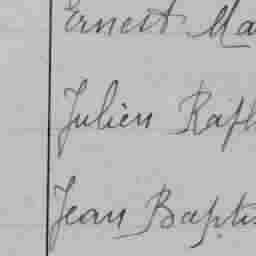 Ernest Ma
Julien Raph
Jean Baptis